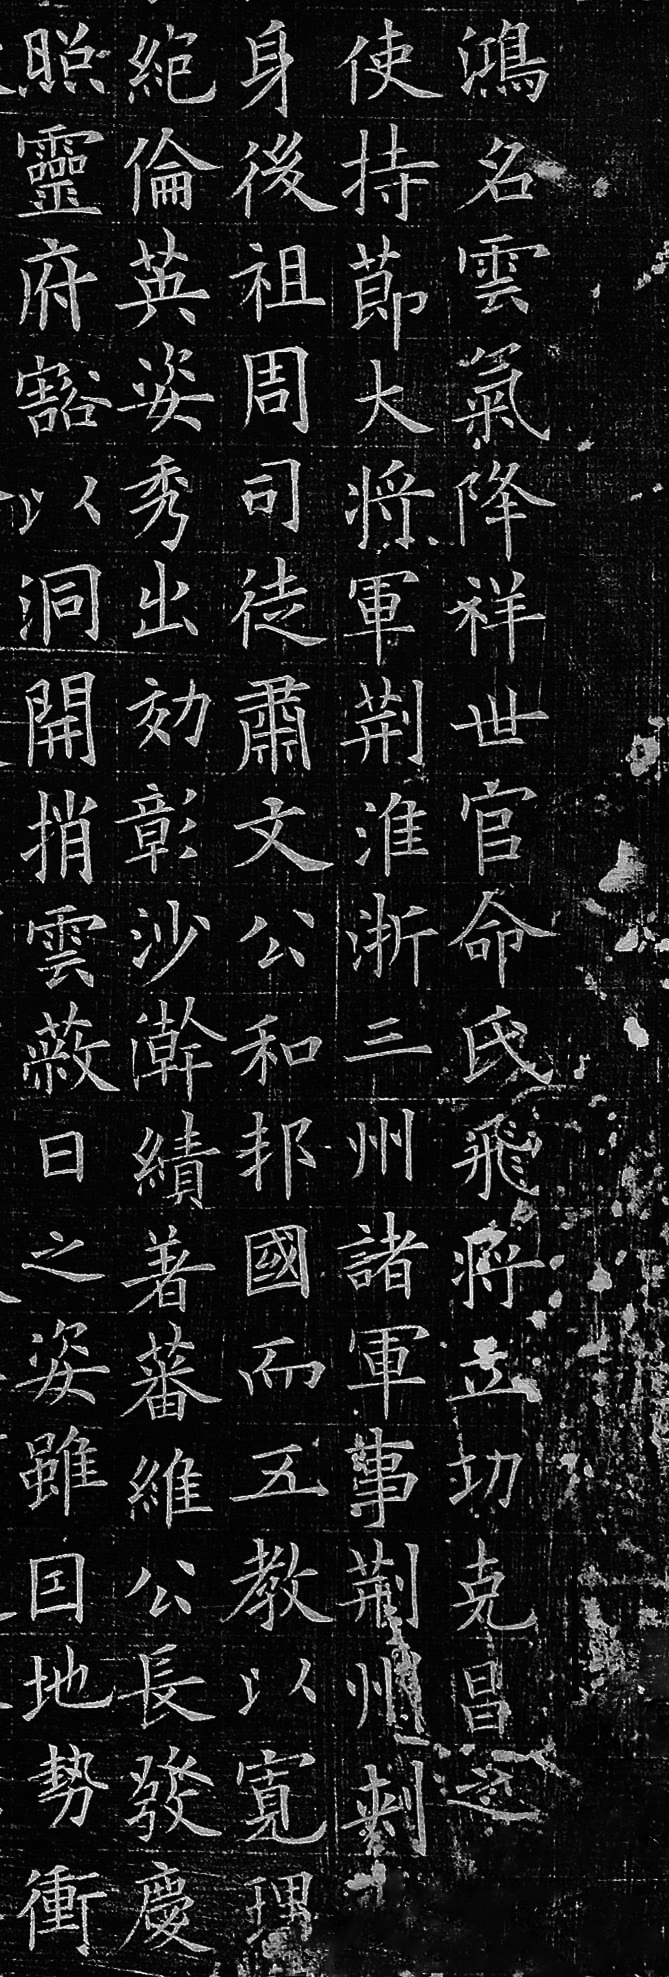 鴻名雲氣降祥世官命氏飛將立功克昌
使持節大將軍荊淮浙三州諸軍事荊州刺
身後祖周司徒肅文公和邦國而五教以寬理
絕倫英姿秀出効彰沙漭績著蕃維公長發慶
照靈府豁以洞開捎雲蔽日之姿雖因地勢衝